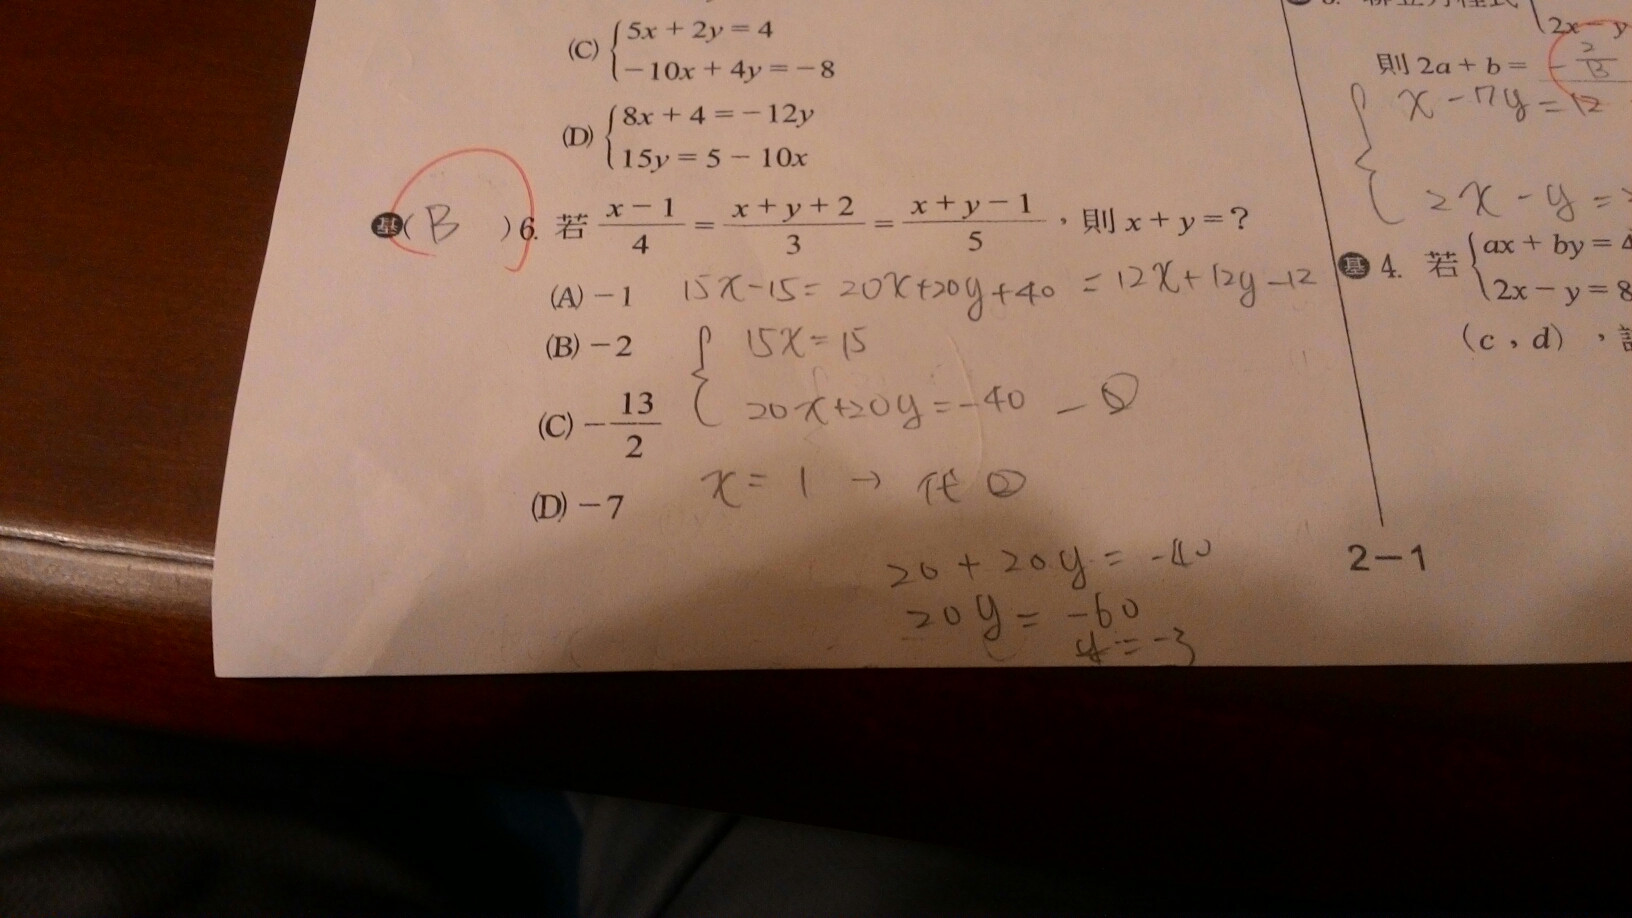 (C) { 5x + 2y = 4
−10x + 4y = −8
(D) { 8x + 4 = −12y
15y = 5 − 10x
基 ( B ) 6. 若 (x − 1)/4 = (x + y + 2)/3 = (x + y − 1)/5 ,則 x + y = ?
(A) −1
(B) −2
(C) −13/2
(D) −7
15x−15 = 20x+20y+40 = 12x+12y−12
{ 15x = 15
20x+20y = −40 — ②
x = 1 → 代 ②
20 + 20y = −40
20y = −60
y = −3
2x − y
則 2a + b = − 2/13
{ x − 7y = 12
2x − y =
基 4. 若 { ax + by = 4
2x − y = 8
(c , d) ,
2−1